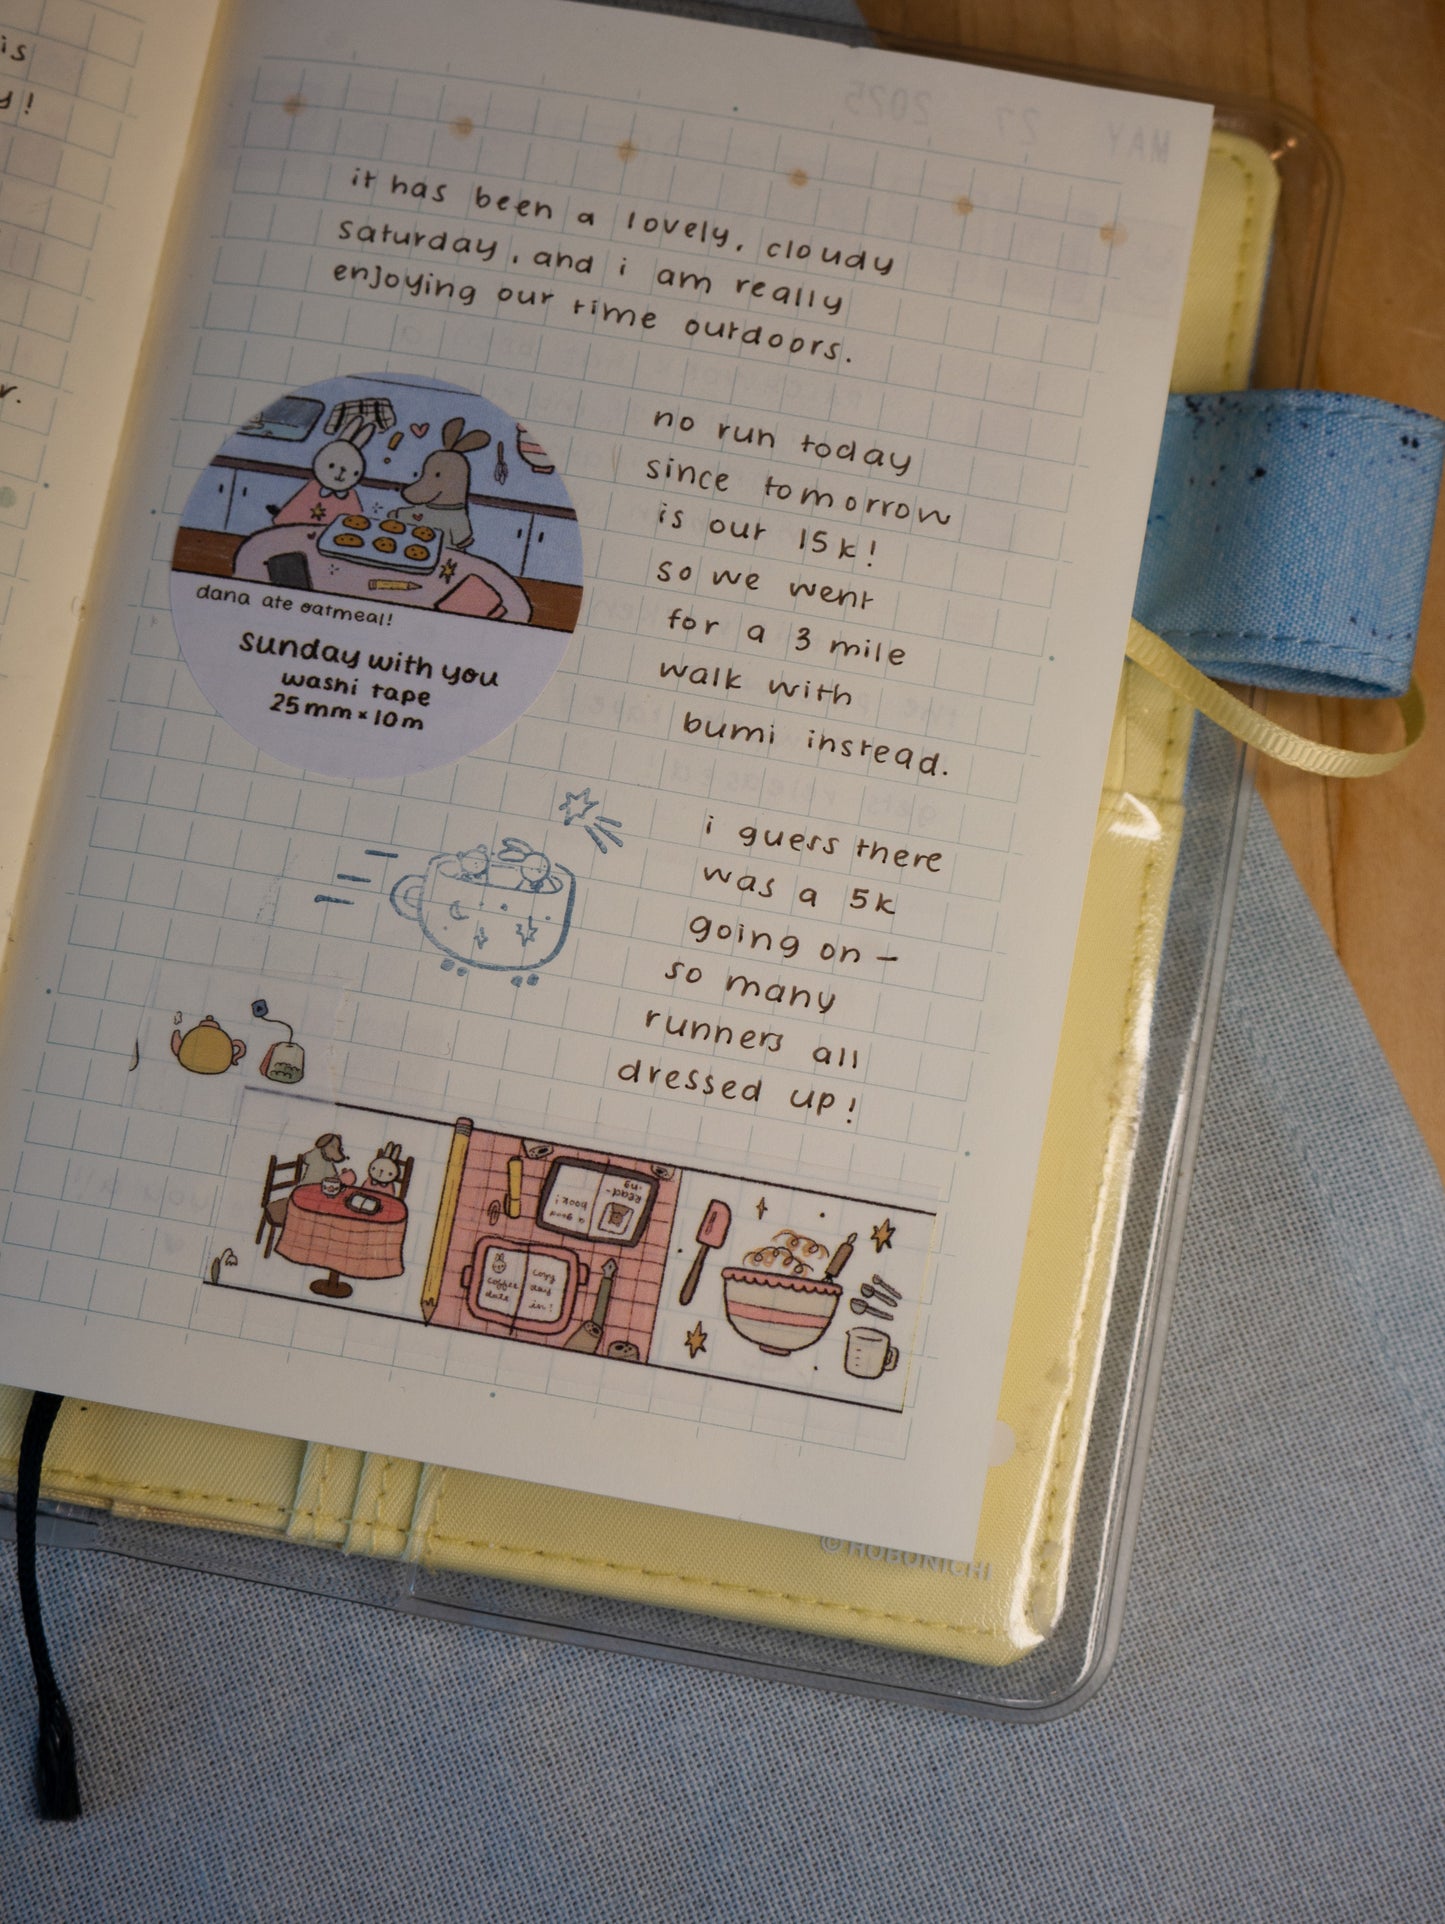 is
y!
r.
MAY 27 2025
it has been a lovely, cloudy
saturday, and i am really
enjoying our time outdoors.
no run today
since tomorrow
is our 15k!
so we went
for a 3 mile
walk with
bumi instead.
i guess there
was a 5k
going on –
so many
runners all
dressed up!
dana ate oatmeal!
sunday with you
washi tape
25mm×10m
Read-
ing
a good
book!
coffee
date
cozy
day
in!
© HOBONICHI